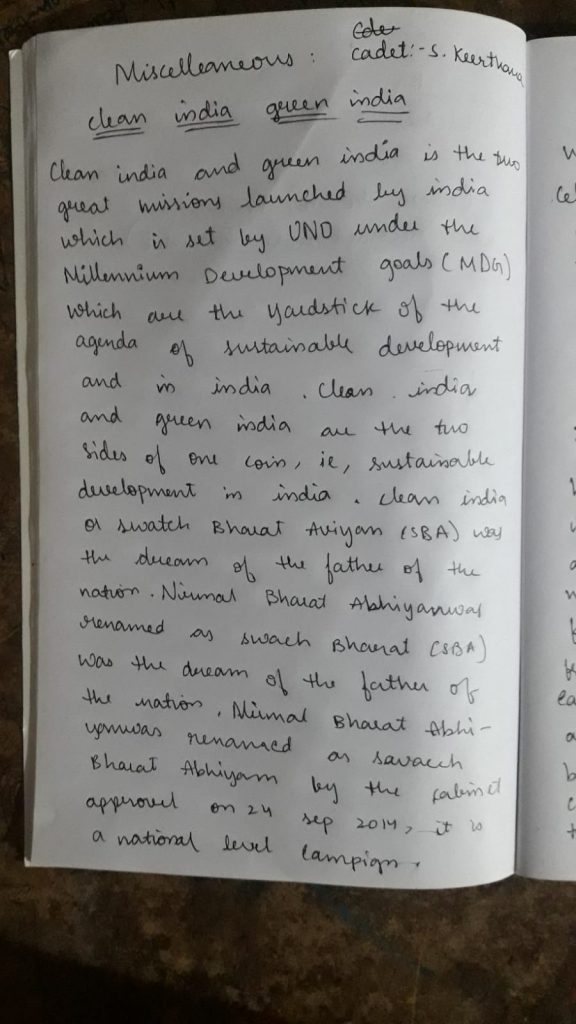 Miscelleaneous :
cadet:- S. Keerthana
clean india green india
Clean india and green india is the two
great missions launched by india
which is set by UNO under the
Millennium Development goals (MDG)
which are the yardstick of the
agenda of sustainable development
and in india . Clean . india
and green india are the two
sides of one coin, ie, sustainable
development in india . clean india
or swatch Bharat Aviyan (SBA) was
the dream of the father of the
nation . Nirmal Bharat Abhiyanwas
renamed as swach Bharat (SBA)
was the dream of the father of
the nation . Nirmal Bharat Abhi-
yanwas renamed as savacch
Bharat Abhiyam by the cabinet
approvel on 24 sep 2014, it is
a national level campign .